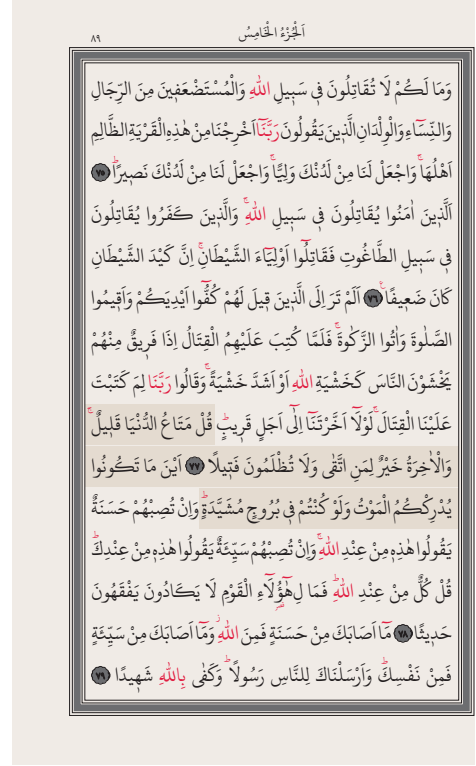 اَلْجُزْءُ الْخَامِسُ
٨٩
وَمَا لَكُمْ لَا تُقَاتِلُونَ فٖي سَبٖيلِ اللّٰهِ وَالْمُسْتَضْعَفٖينَ مِنَ الرِّجَالِ
وَالنِّسَٓاءِ وَالْوِلْدَانِ الَّذٖينَ يَقُولُونَ رَبَّنَٓا اَخْرِجْنَا مِنْ هٰذِهِ الْقَرْيَةِ الظَّالِمِ
اَهْلُهَاۚ وَاجْعَلْ لَنَا مِنْ لَدُنْكَ وَلِيًّاۚ وَاجْعَلْ لَنَا مِنْ لَدُنْكَ نَصٖيرًاؕ ٧٥
اَلَّذٖينَ اٰمَنُوا يُقَاتِلُونَ فٖي سَبٖيلِ اللّٰهِۚ وَالَّذٖينَ كَفَرُوا يُقَاتِلُونَ
فٖي سَبٖيلِ الطَّاغُوتِ فَقَاتِلُٓوا اَوْلِيَٓاءَ الشَّيْطَانِۚ اِنَّ كَيْدَ الشَّيْطَانِ
كَانَ ضَعٖيفًاۚ ٧٦ اَلَمْ تَرَ اِلَى الَّذٖينَ قٖيلَ لَهُمْ كُفُّٓوا اَيْدِيَكُمْ وَاَقٖيمُوا
الصَّلٰوةَ وَاٰتُوا الزَّكٰوةَۚ فَلَمَّا كُتِبَ عَلَيْهِمُ الْقِتَالُ اِذَا فَرٖيقٌ مِنْهُمْ
يَخْشَوْنَ النَّاسَ كَخَشْيَةِ اللّٰهِ اَوْ اَشَدَّ خَشْيَةًۚ وَقَالُوا رَبَّنَا لِمَ كَتَبْتَ
عَلَيْنَا الْقِتَالَۚ لَوْلَٓا اَخَّرْتَنَٓا اِلٰٓى اَجَلٍ قَرٖيبٍؕ قُلْ مَتَاعُ الدُّنْيَا قَلٖيلٌۚ
وَالْاٰخِرَةُ خَيْرٌ لِمَنِ اتَّقٰى وَلَا تُظْلَمُونَ فَتٖيلًا ٧٧ اَيْنَ مَا تَكُونُوا
يُدْرِكْكُمُ الْمَوْتُ وَلَوْ كُنْتُمْ فٖي بُرُوجٍ مُشَيَّدَةٍؕ وَاِنْ تُصِبْهُمْ حَسَنَةٌ
يَقُولُوا هٰذِهٖ مِنْ عِنْدِ اللّٰهِۚ وَاِنْ تُصِبْهُمْ سَيِّئَةٌ يَقُولُوا هٰذِهٖ مِنْ عِنْدِكَؕ
قُلْ كُلٌّ مِنْ عِنْدِ اللّٰهِؕ فَمَا لِهٰٓؤُ۬لَٓاءِ الْقَوْمِ لَا يَكَادُونَ يَفْقَهُونَ
حَدٖيثًا ٧٨ مَٓا اَصَابَكَ مِنْ حَسَنَةٍ فَمِنَ اللّٰهِؗ وَمَٓا اَصَابَكَ مِنْ سَيِّئَةٍ
فَمِنْ نَفْسِكَؕ وَاَرْسَلْنَاكَ لِلنَّاسِ رَسُولًاؕ وَكَفٰى بِاللّٰهِ شَهٖيدًا ٧٩